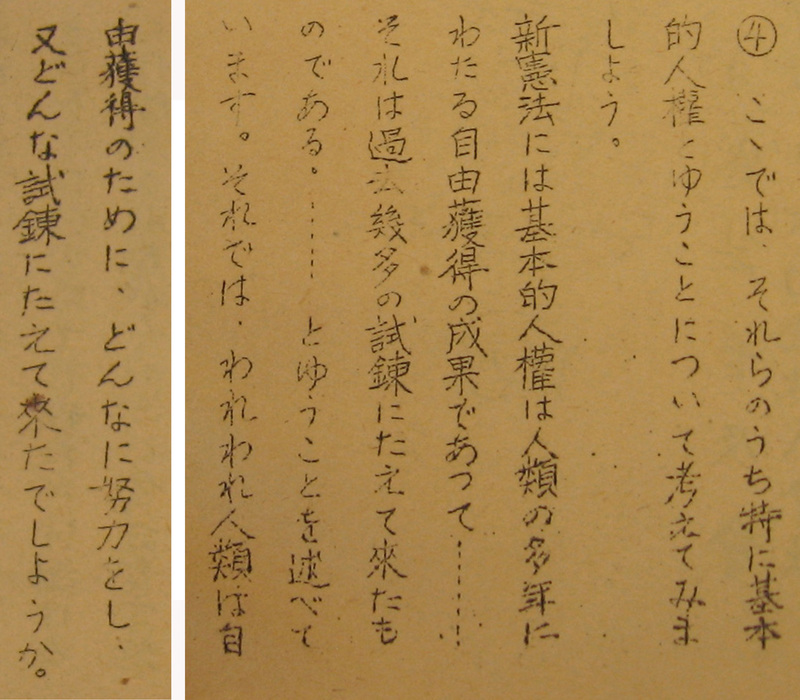 ④ こゝでは、それらのうち特に基本
的人權とゆうことについて考えてみま
しよう。
新憲法には基本的人權は人類の多年に
わたる自由獲得の成果であつて……
それは過去幾多の試錬にたえて來たも
のである。……とゆうことを述べて
います。それでは、われわれ人類は自
由獲得のために、どんなに努力をし、
又どんな試錬にたえて來たでしようか。